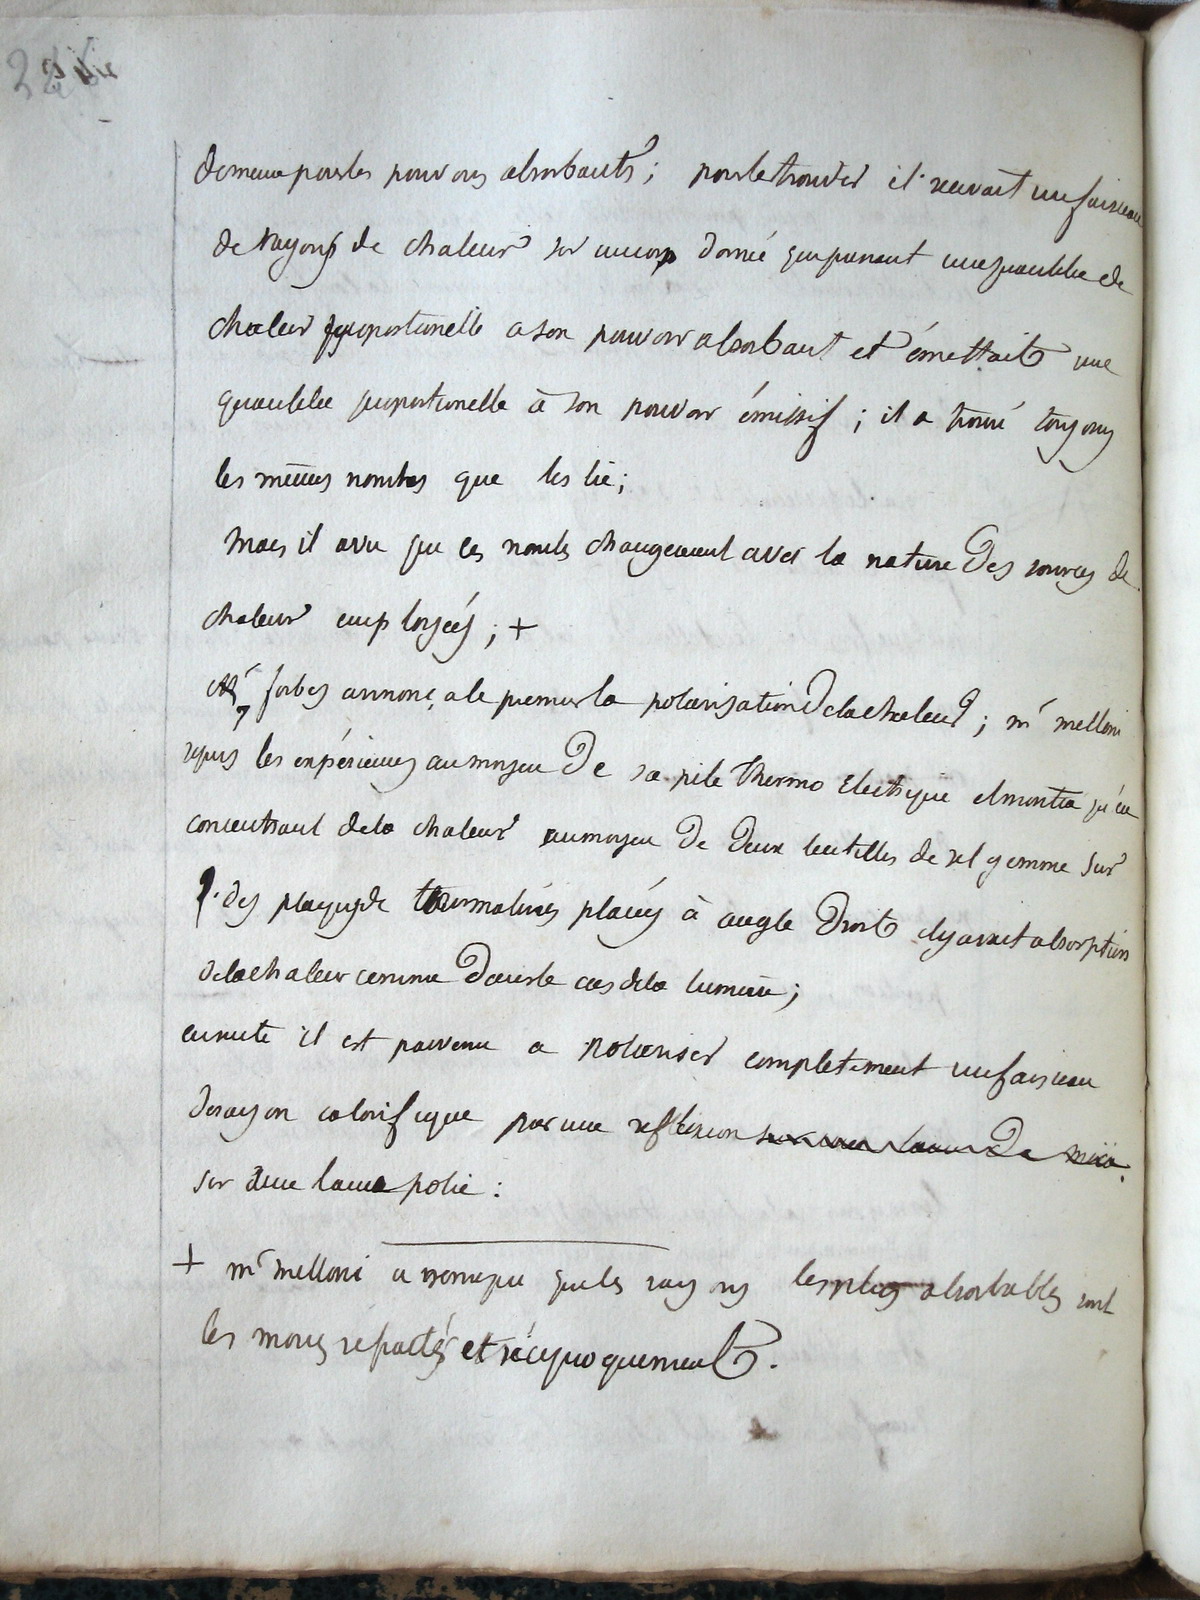 de meme pour les pouvoirs absorbants ; pour le trouver il recevait un faisceau
de rayons de chaleur sur un corp donné qui prenait une quantitée de
chaleur proportionelle a son pouvoir absorbant et émettait une
quantitée proportionelle à son pouvoir émissif ; il a trouvé toujours
les mêmes nombres que les lié ;
Mais il a vu que ces nombres changeaient avec la nature des sources de
chaleur employées ; +
Mr forbes annonça le premier la polarisation de la chaleur ; mr melloni
repris les expériences au moyen de sa pile thermo Electrique et montra qu'en
concentrant de la chaleur au moyen de deux lentilles de sel gemme sur
des plaques de tourmalines placées à angle droit il y avait absorption
de la chaleur comme dans le cas de la lumière ;
ensuite il est parvenu a polariser completement un faisceau
de rayon calorifique par une reflexion sur une lame de mica
sur une lame polie :
+ mr melloni a remarqué que les rayons les plus absorbables sont
les moins refractés et réciproquement.